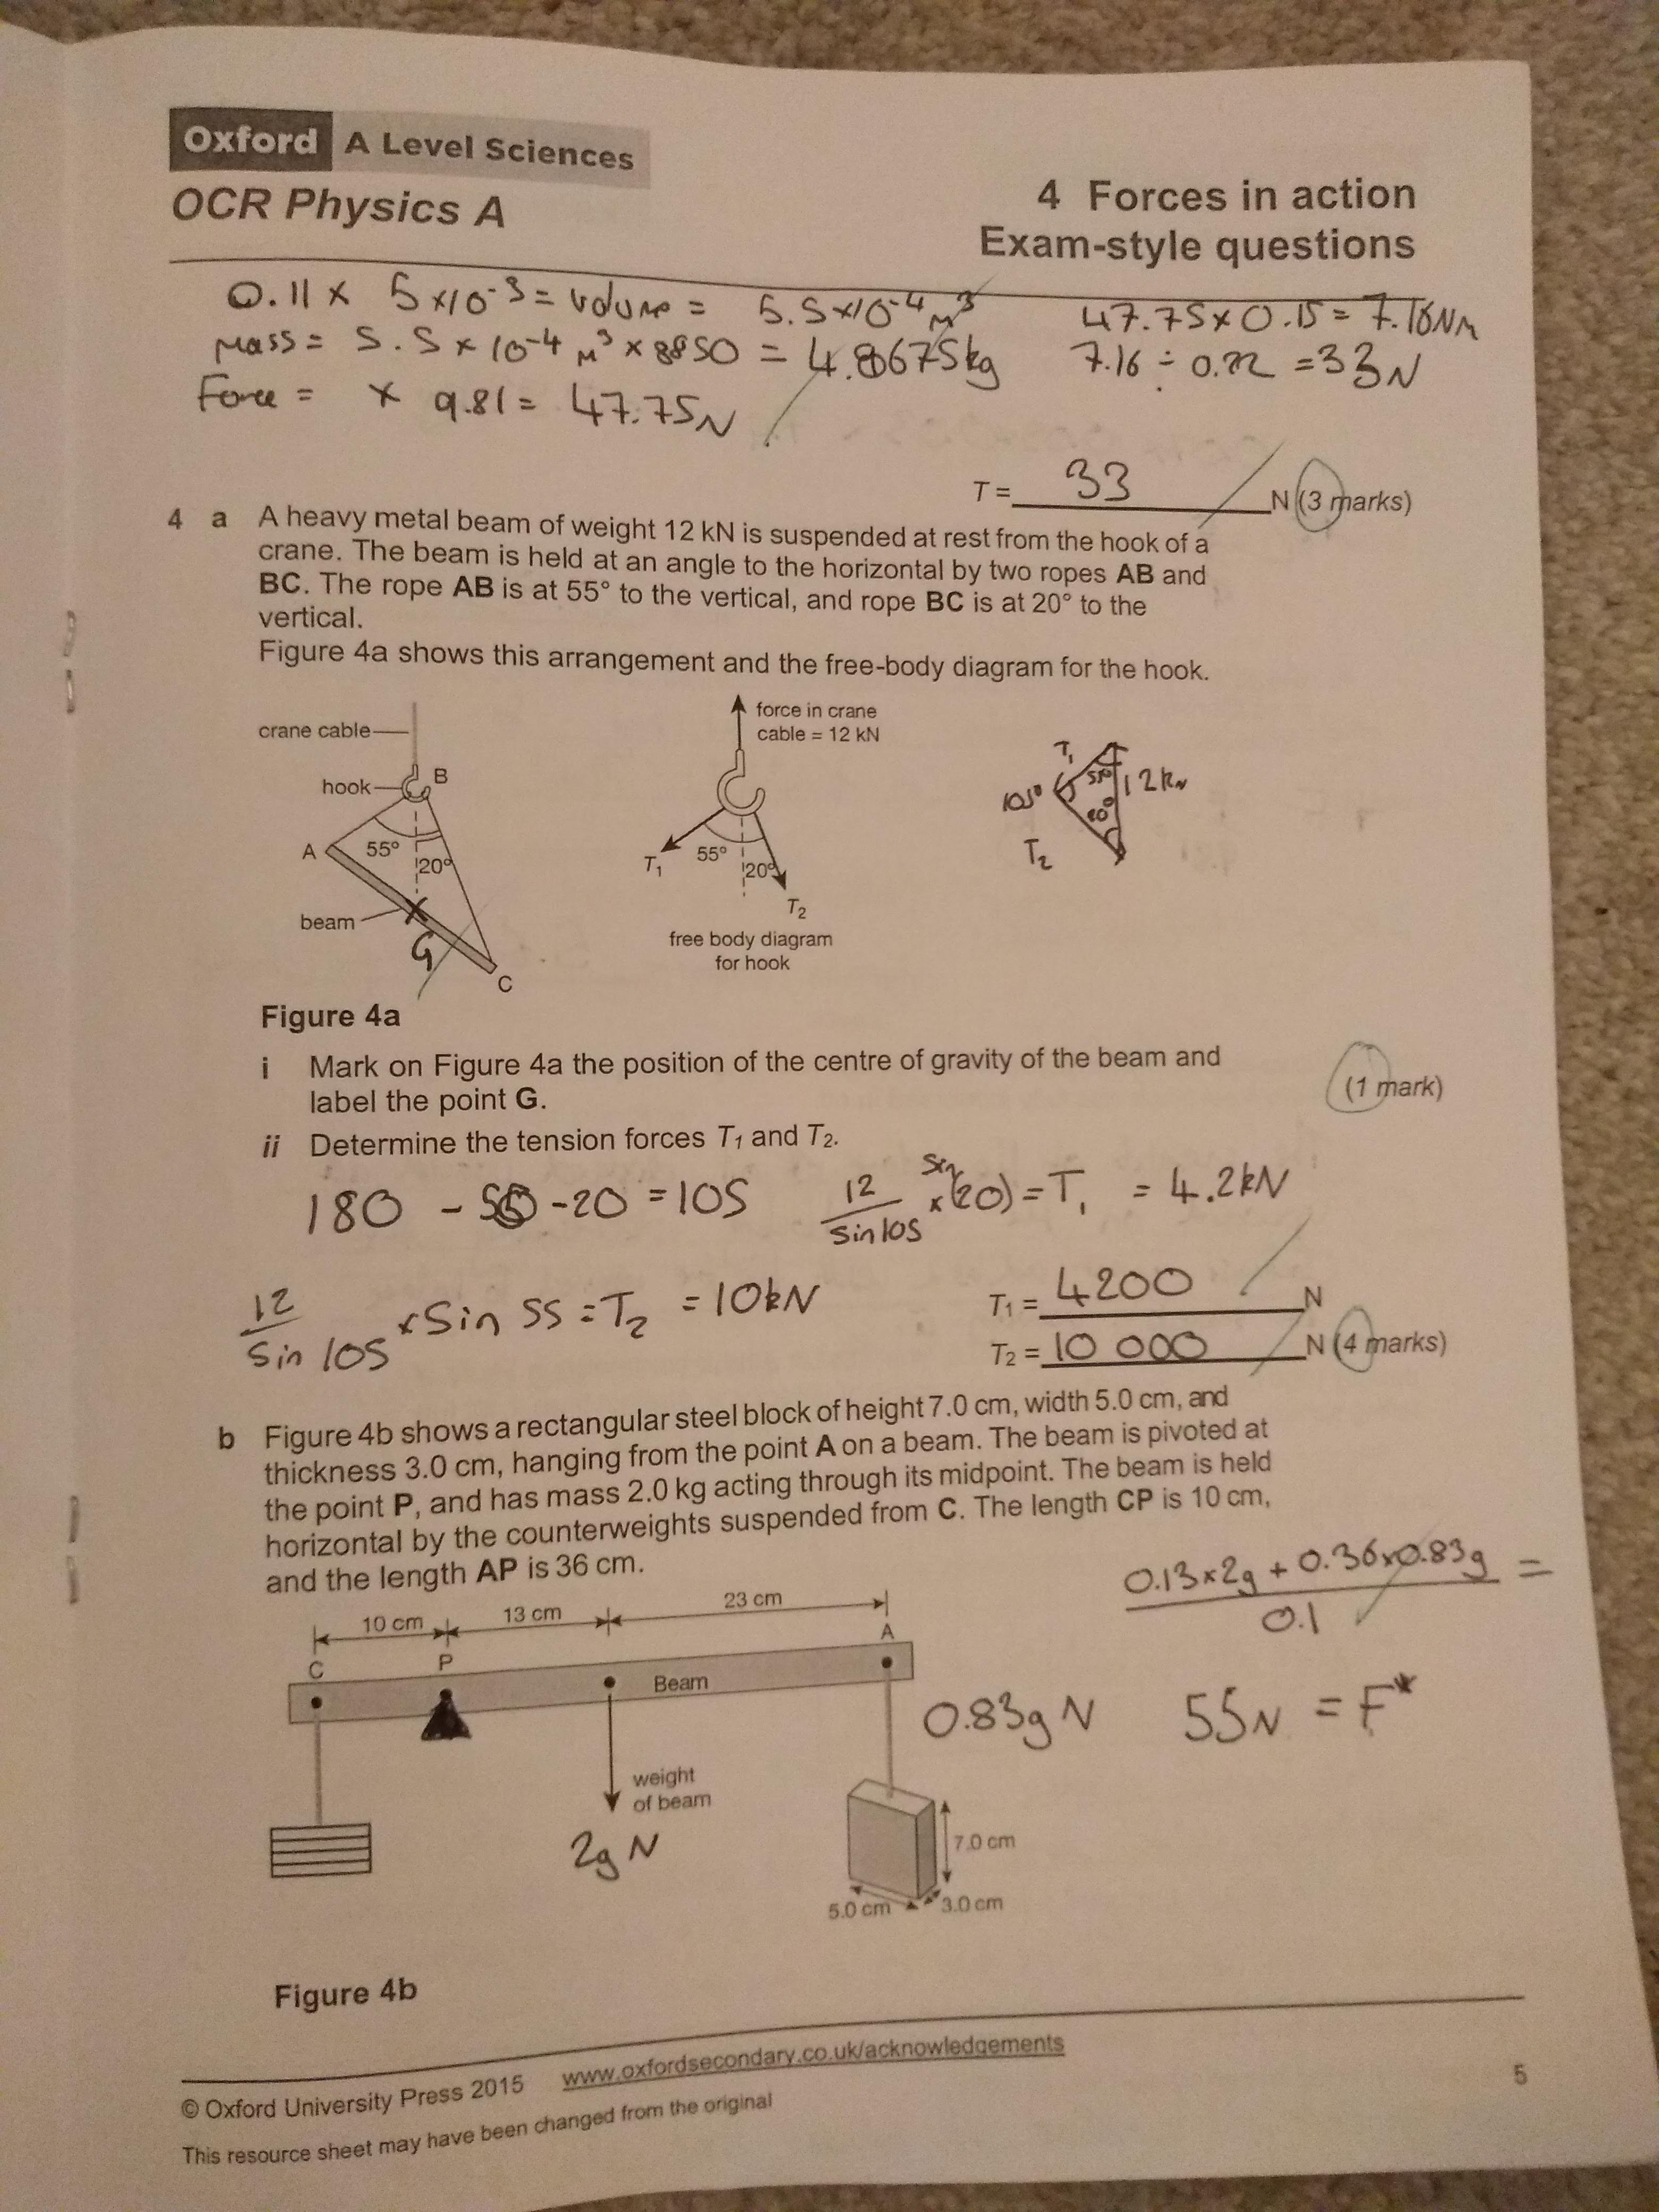 Oxford A Level Sciences
OCR Physics A
4 Forces in action
Exam-style questions
0.11 x 5x10^-3 = volume = 5.5x10^-4 m^3
mass = 5.5 x 10^-4 m^3 x 8850 = 4.8675kg
Force = x 9.81 = 47.75N
47.75 x 0.15 = 7.16Nm
7.16 ÷ 0.22 = 33N
T = 33 N (3 marks)
4 a A heavy metal beam of weight 12 kN is suspended at rest from the hook of a
crane. The beam is held at an angle to the horizontal by two ropes AB and
BC. The rope AB is at 55° to the vertical, and rope BC is at 20° to the
vertical.
Figure 4a shows this arrangement and the free-body diagram for the hook.
crane cable
hook
B
A
55°
20°
beam
G
C
force in crane
cable = 12 kN
T1
55°
20°
T2
free body diagram
for hook
T1
55°
12kN
105°
20°
T2
Figure 4a
i Mark on Figure 4a the position of the centre of gravity of the beam and
label the point G.
(1 mark)
ii Determine the tension forces T1 and T2.
180 - 55 - 20 = 105
12/sin105 x sin(20) = T1 = 4.2kN
12/sin 105 x Sin 55 = T2 = 10kN
T1 = 4200 N
T2 = 10 000 N (4 marks)
b Figure 4b shows a rectangular steel block of height 7.0 cm, width 5.0 cm, and
thickness 3.0 cm, hanging from the point A on a beam. The beam is pivoted at
the point P, and has mass 2.0 kg acting through its midpoint. The beam is held
horizontal by the counterweights suspended from C. The length CP is 10 cm,
and the length AP is 36 cm.
0.13x2g + 0.36x0.83g =
0.1
10 cm
13 cm
23 cm
C
P
A
Beam
0.83g N
55N = F*
weight
of beam
2g N
7.0 cm
5.0 cm
3.0 cm
Figure 4b
© Oxford University Press 2015 www.oxfordsecondary.co.uk/acknowledgements
This resource sheet may have been changed from the original
5